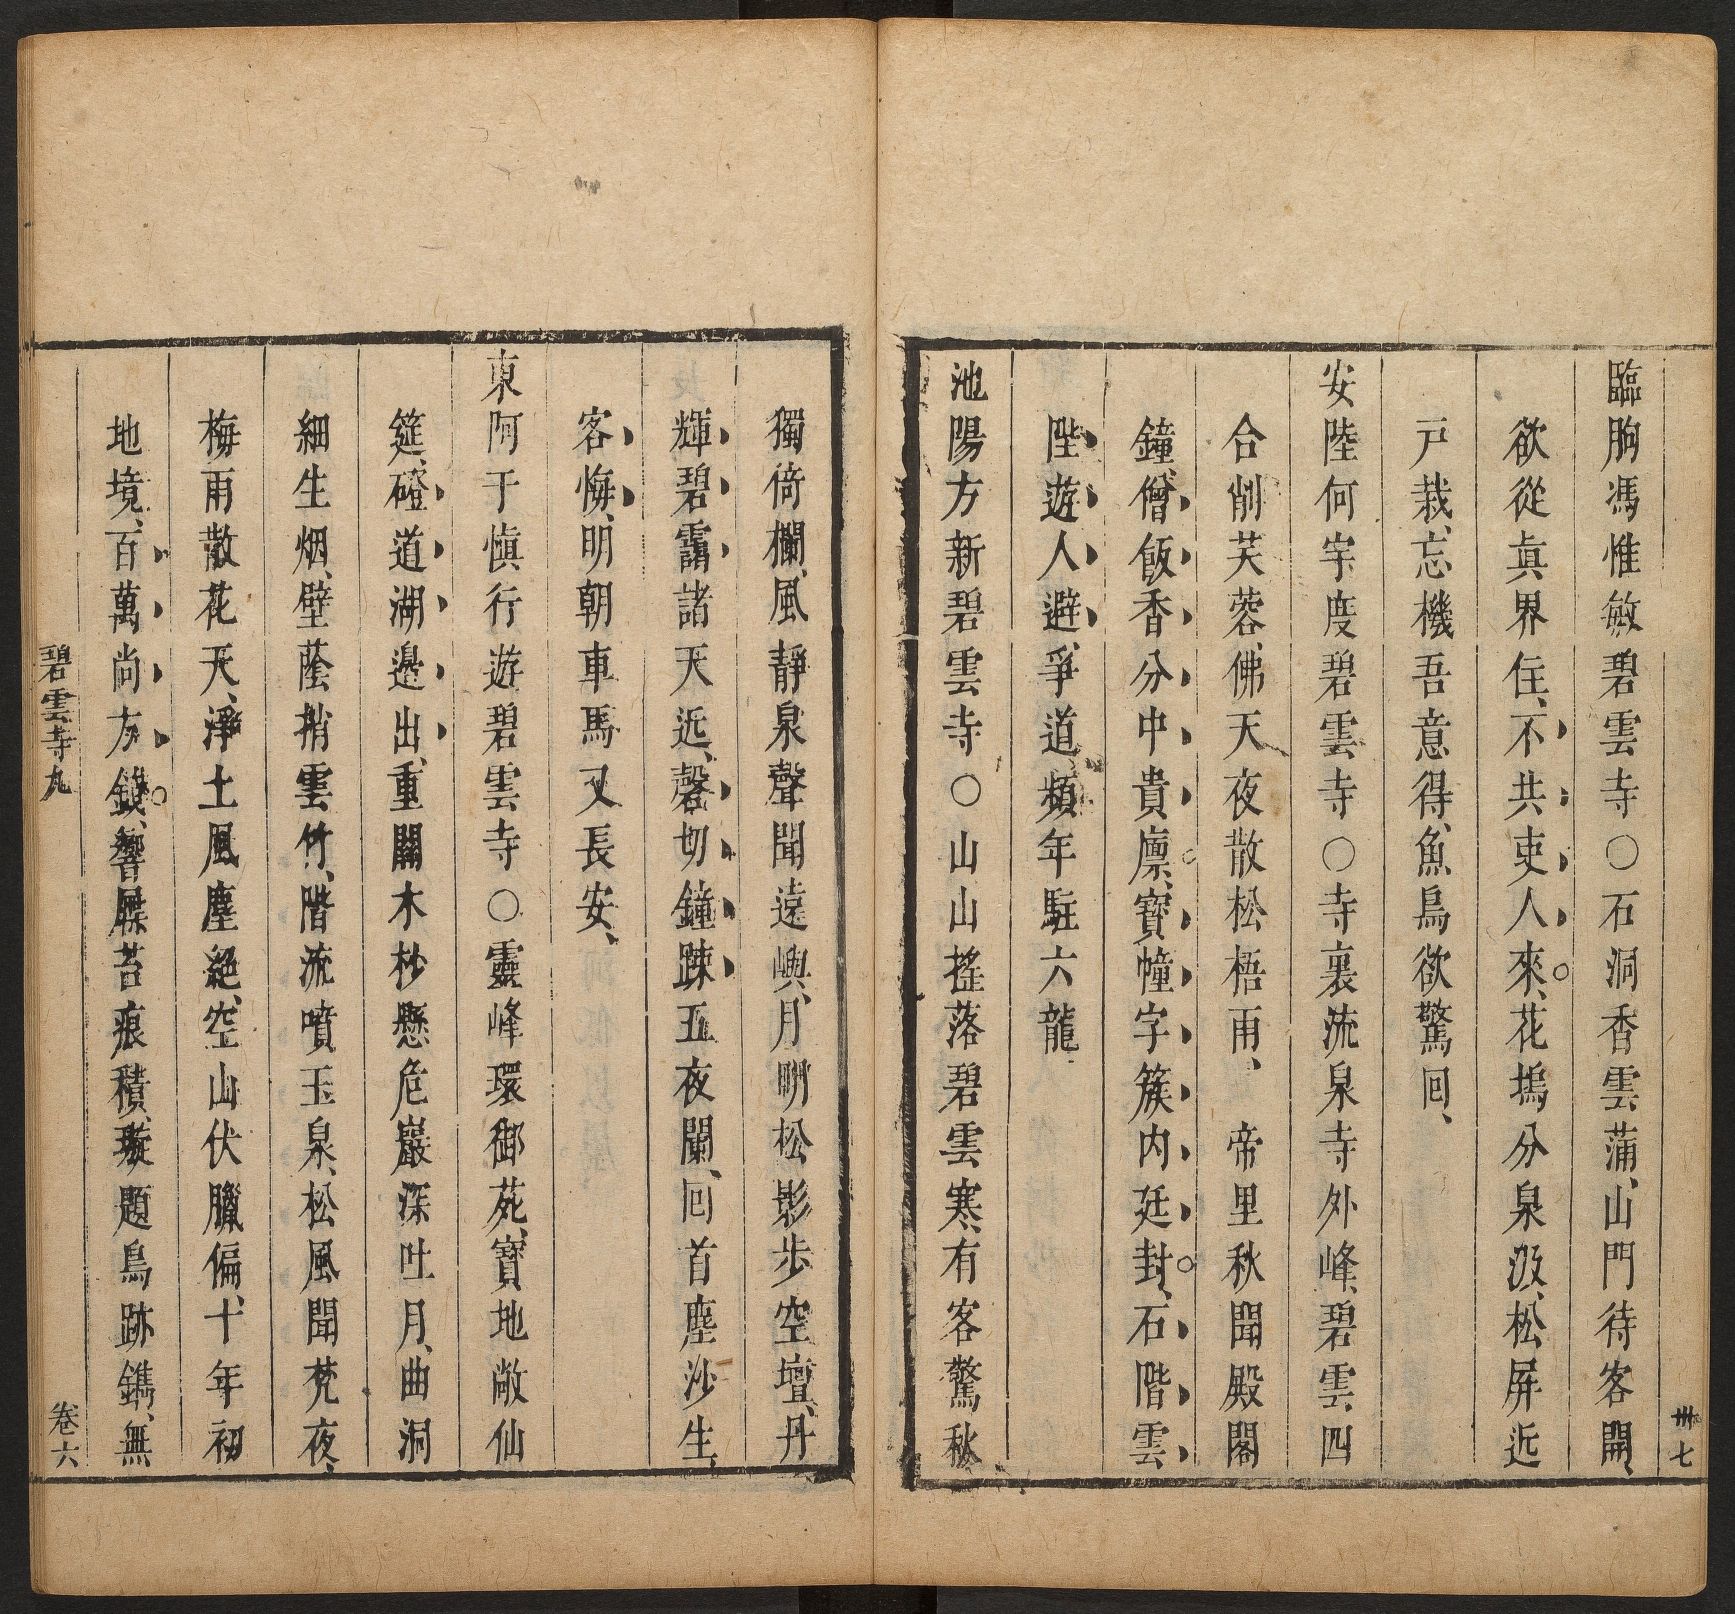 臨朐馮惟敏碧雲寺○石洞香雲蒲、山門待客開、
欲從眞界住、不共吏人來、花塢分泉汲、松屏近
戸栽、忘機吾意得、魚鳥欲驚回、
安陸何宇度碧雲寺○寺裏流泉寺外峰、碧雲四
合削芙蓉、佛天夜散松梧雨、帝里秋聞殿閣
鐘、僧飯香分中貴廩、寶幢字簇内廷封、石階雲
陛遊人避、爭道頻年駐六龍
池陽方新碧雲寺○山山搖落碧雲寒、有客驚秋
三七
獨倚欄、風靜泉聲聞遠嶼、月明松影步空壇、丹
輝碧靄諸天近、磬切鐘踈五夜闌、回首塵沙生
客悔、明朝車馬又長安、
東阿于愼行遊碧雲寺○靈峰環御苑、寶地敞仙
筵、磴道湖邉出、重關木杪懸、危巖深吐月、曲洞
細生烟、壁蔭捎雲竹、階流噴玉泉、松風聞梵夜、
梅雨散花天、淨土風塵絕、空山伏臘偏、十年初
地境、百萬尚方錢、響屧苔痕積、璇題鳥跡鐫、無
碧雲寺九
卷六